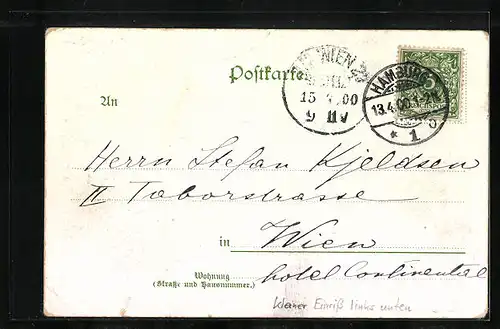 Postkarte
WIEN
15 4 00
9 V
HAMBURG
13.4.00.1-2N
* 1 o
5
An
Herrn Stefan Kjeldsen
II Taborstrasse
in Wien
Wohnung
(Straße und Hausnummer.)
hotel Continental
kleiner Einriß links unten